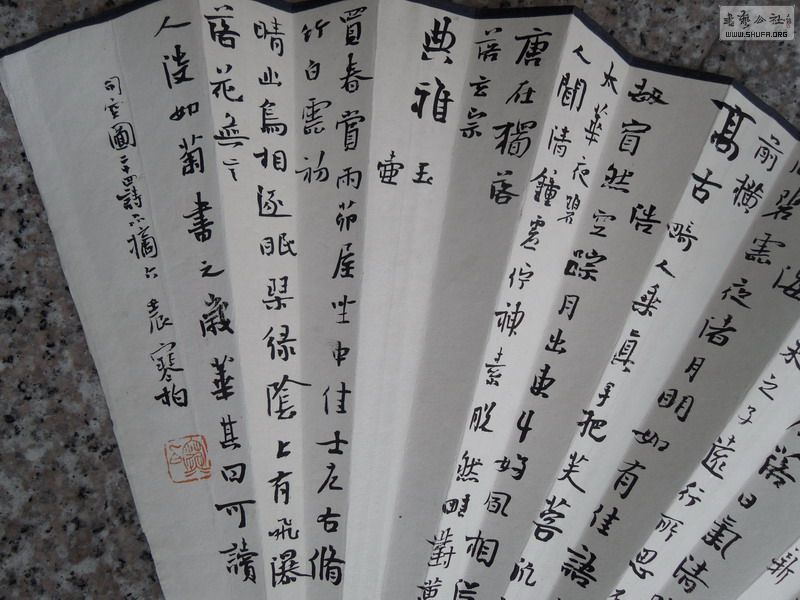 新
落日氣清
來之子遠行所思不
海
碧雲夜渚月明如有佳語
前橫
高古
畸人乘真手把芙蓉汎
浩
劫窅然空蹤月出東斗好風相從
太華夜碧
人聞清鐘虛佇神素脫然畦封黃
唐在獨落
落玄宗
典雅
玉
壺
買春賞雨茆屋坐中佳士左右脩
竹白雲初
晴幽鳥相逐眠琴綠陰上有飛瀑
落花無言
人淡如菊書之歲華其曰可讀
司空圖二十四詩品摘六 袁寒柏
書藝公社
WWW.SHUFA.ORG